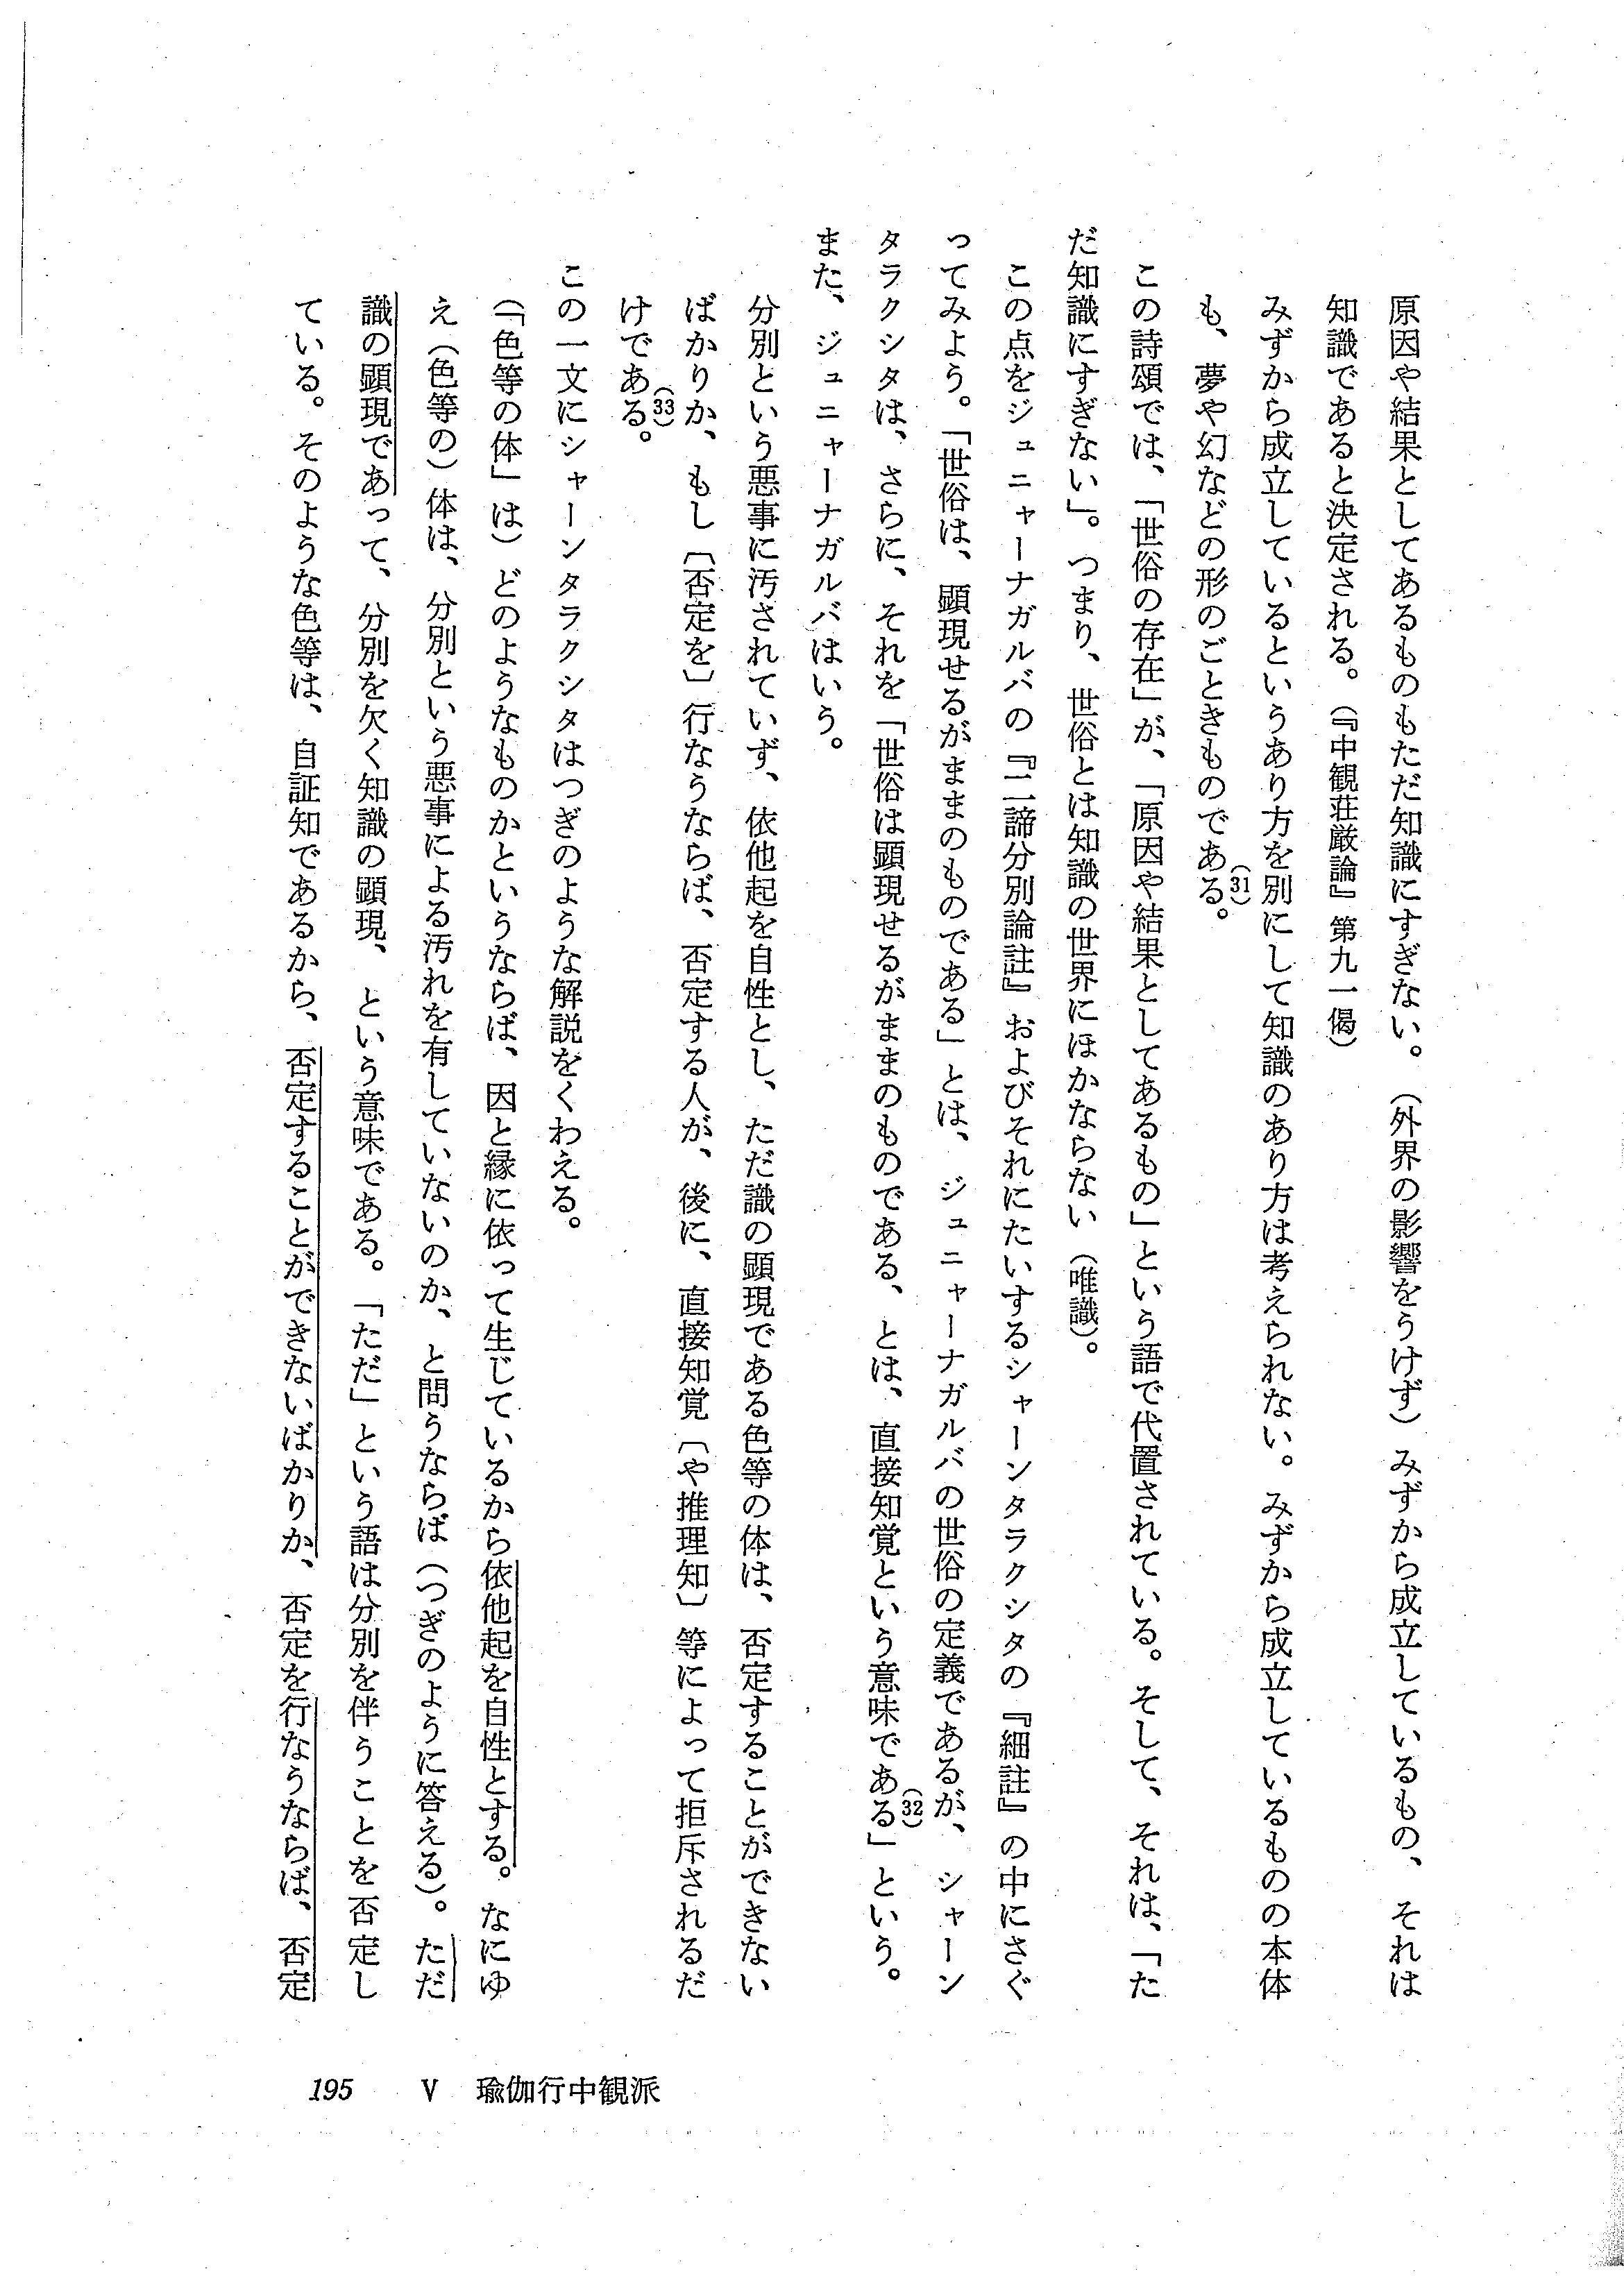 原因や結果としてあるものもただ知識にすぎない。（外界の影響をうけず）みずから成立しているもの、それは
知識であると決定される。（『中観荘厳論』第九一偈）
みずから成立しているというあり方を別にして知識のあり方は考えられない。みずから成立しているものの本体
も、夢や幻などの形のごときものである(31)。
この詩頌では、「世俗の存在」が、「原因や結果としてあるもの」という語で代置されている。そして、それは、「た
だ知識にすぎない」。つまり、世俗とは知識の世界にほかならない（唯識）。
この点をジュニャーナガルバの『二諦分別論註』およびそれにたいするシャーンタラクシタの『細註』の中にさぐ
ってみよう。「世俗は、顕現せるがままのものである」とは、ジュニャーナガルバの世俗の定義であるが、シャーン
タラクシタは、さらに、それを「世俗は顕現せるがままのものである、とは、直接知覚という意味である(32)」という。
また、ジュニャーナガルバはいう。
分別という悪事に汚されていず、依他起を自性とし、ただ識の顕現である色等の体は、否定することができない
ばかりか、もし〔否定を〕行なうならば、否定する人が、後に、直接知覚〔や推理知〕等によって拒斥されるだ
けである(33)。
この一文にシャーンタラクシタはつぎのような解説をくわえる。
（「色等の体」は）どのようなものかというならば、因と縁に依って生じているから依他起を自性とする。なにゆ
え（色等の）体は、分別という悪事による汚れを有していないのか、と問うならば（つぎのように答える）。ただ
識の顕現であって、分別を欠く知識の顕現、という意味である。「ただ」という語は分別を伴うことを否定し
ている。そのような色等は、自証知であるから、否定することができないばかりか、否定を行なうならば、否定
195 V 瑜伽行中観派